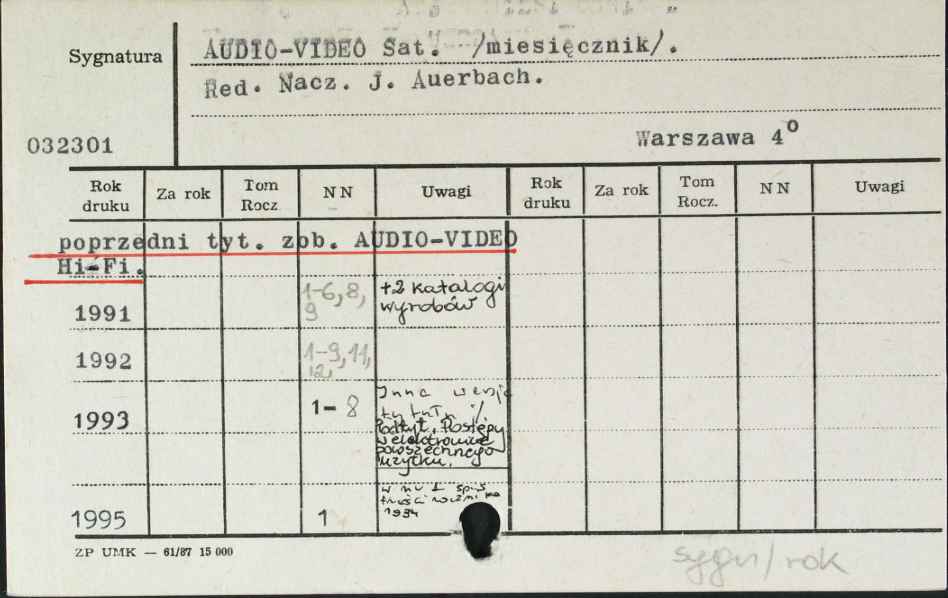 Sygnatura
AUDIO-VIDEO Sat. /miesięcznik/.
Red. Nacz. J. Auerbach.
032301
Warszawa 4°
Rok druku Za rok Tom Rocz. NN Uwagi Rok druku Za rok Tom Rocz. NN Uwagi
poprzedni tyt. zob. AUDIO-VIDEO
Hi-Fi.
1991 1-6,8, +2 katalogi
9 wyrobów
1992 1-9,11,
12,
1993 1-8 Inna wersja
tytułu /
Podtyt. Postępy
w elektronice
powszechnego
użytku.
1995 1 w nr 1 spis
treści
1994
ZP UMK — 61/87 15 000
sygn/rok